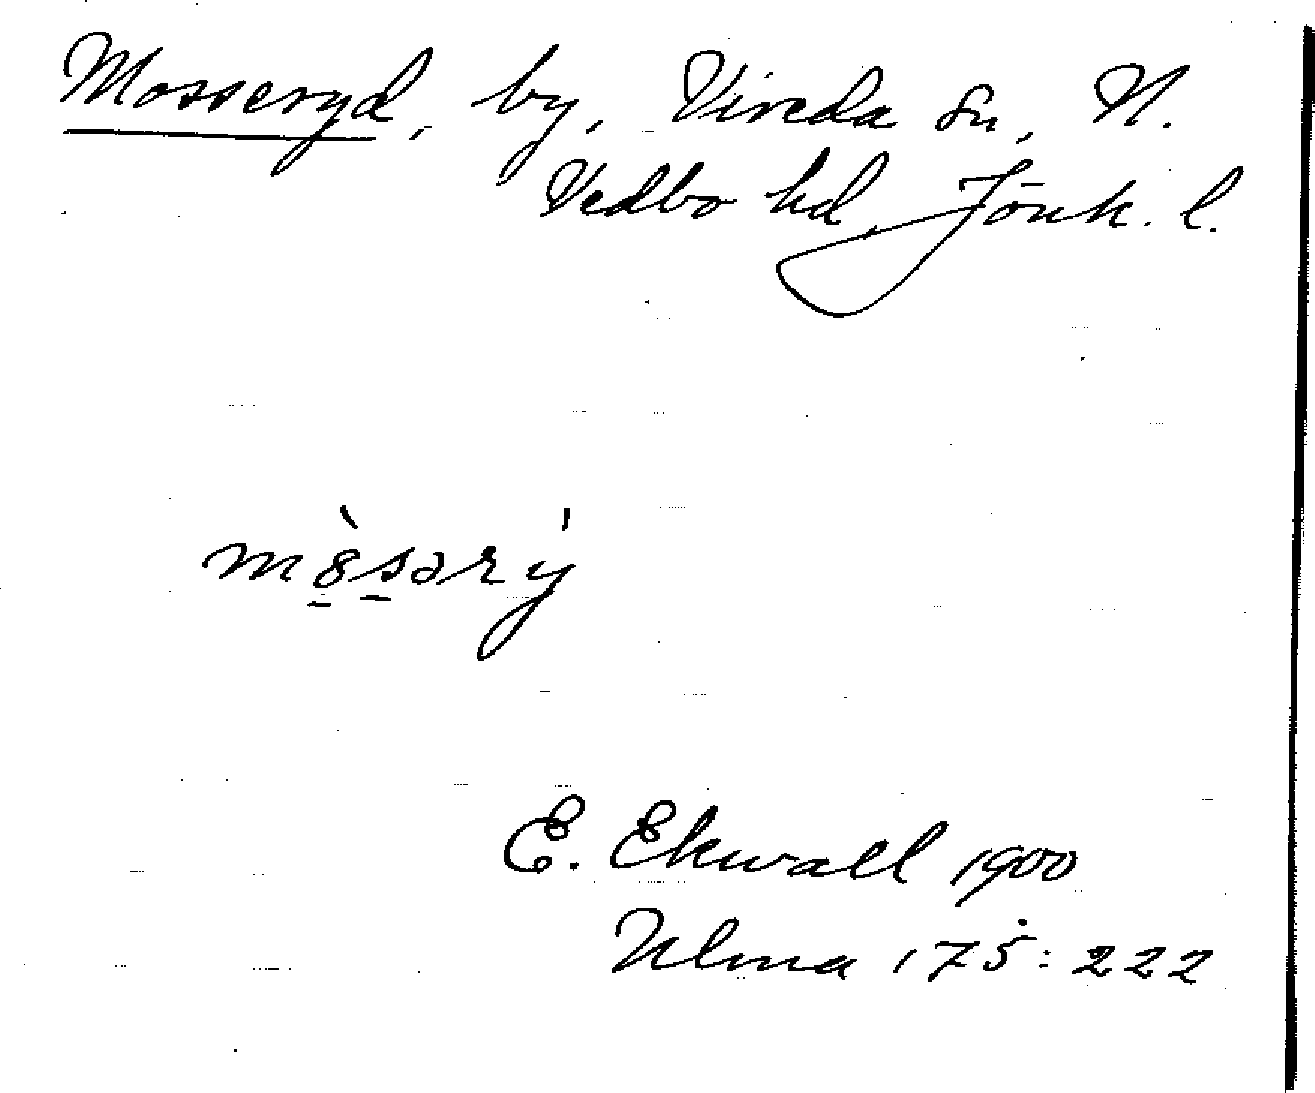 Mosseryd, by, Vireda sn, N.
Vedbo hd, Jönk. l.
mo̱̊̀s̱ərý
E. Ekwall 1900
Ulma 175:222